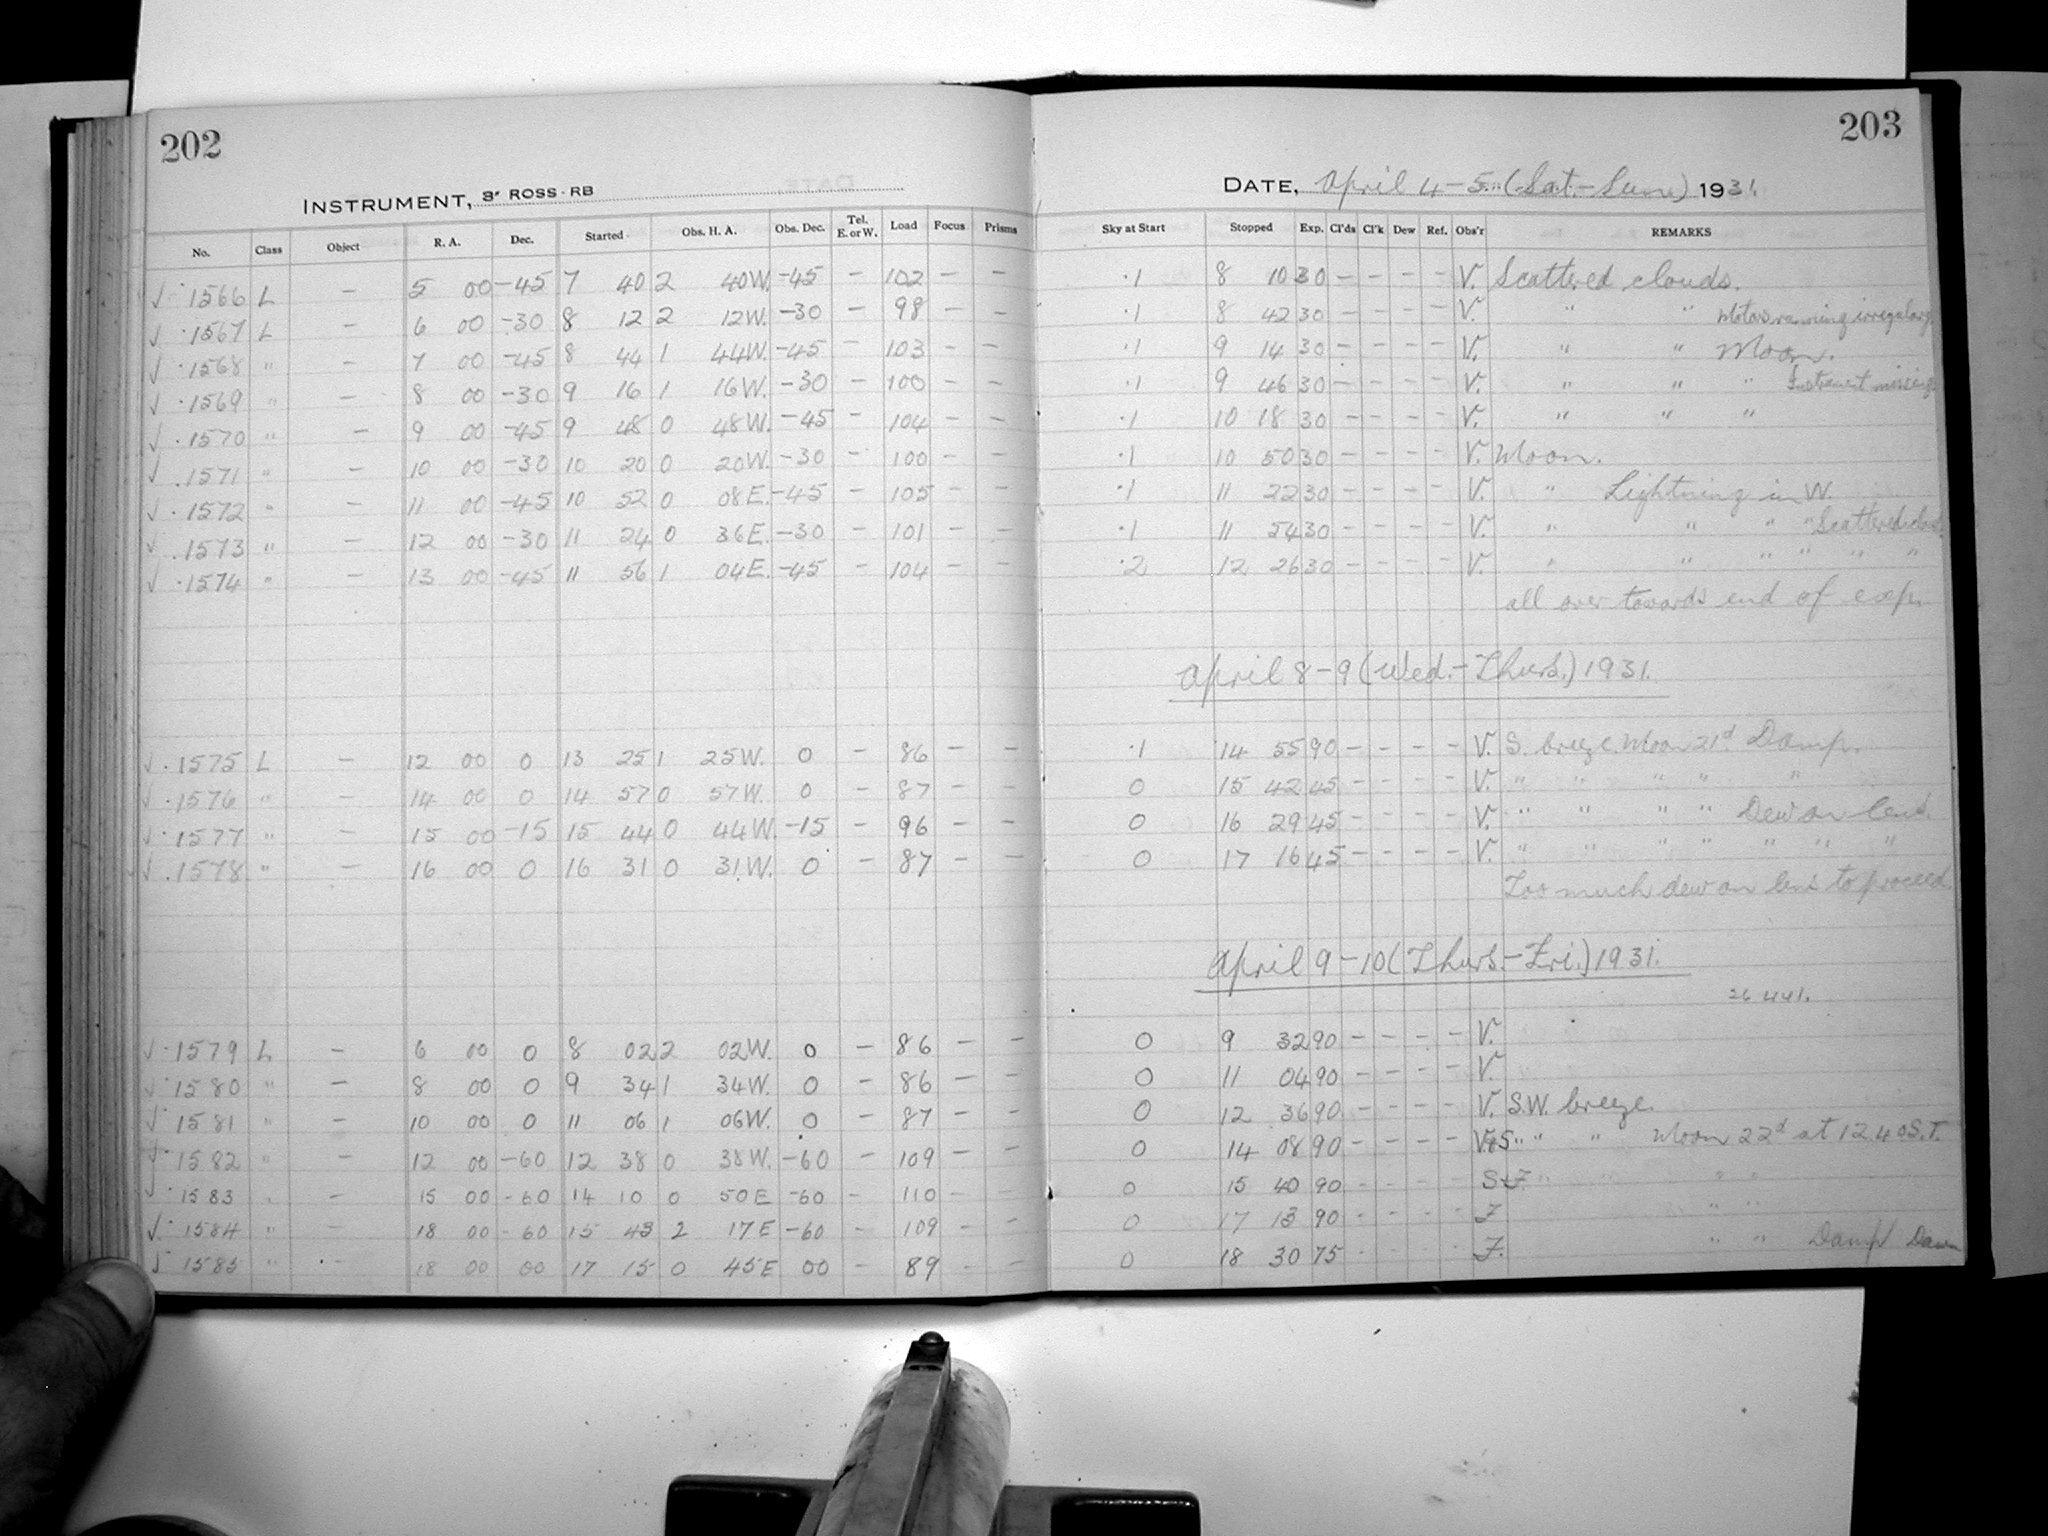 202
INSTRUMENT, 3" ROSS-RB
No. Class Object R. A. Dec. Started Obs. H. A. Obs. Dec. Tel. E. or W. Load Focus Prisms
√ · 1566 L — 5 00 -45 7 40 2 40W. -45 — 102 — —
√ · 1567 L — 6 00 -30 8 12 2 12W. -30 — 98 — —
√ · 1568 " — 7 00 -45 8 44 1 44W. -45 — 103 — —
√ · 1569 " — 8 00 -30 9 16 1 16W. -30 — 100 — —
√ · 1570 " — 9 00 -45 9 48 0 48W. -45 — 104 — —
√ · 1571 " — 10 00 -30 10 20 0 20W. -30 — 100 — —
√ · 1572 " — 11 00 -45 10 52 0 08E. -45 — 105 — —
√ · 1573 " — 12 00 -30 11 24 0 36E. -30 — 101 — —
√ · 1574 " — 13 00 -45 11 56 1 04E. -45 — 104 — —
√ · 1575 L — 12 00 0 13 25 1 25W. 0 — 86 — —
√ · 1576 " — 14 00 0 14 57 0 57W. 0 — 87 — —
√ · 1577 " — 15 00 -15 15 44 0 44W. -15 — 96 — —
√ · 1578 " — 16 00 0 16 31 0 31W. 0 — 87 — —
√ · 1579 L — 6 00 0 8 02 2 02W. 0 — 86 — —
√ · 1580 " — 8 00 0 9 34 1 34W. 0 — 86 — —
√ · 1581 " — 10 00 0 11 06 1 06W. 0 — 87 — —
√ · 1582 " — 12 00 -60 12 38 0 38W. -60 — 109 — —
√ · 1583 " — 15 00 -60 14 10 0 50E -60 — 110 — —
√ · 1584 " — 18 00 -60 15 43 2 17E -60 — 109 — —
√ · 1585 " — 18 00 00 17 15 0 45E 00 — 89 — —
203
DATE, April 4-5 (Sat.-Sun.) 1931.
Sky at Start Stopped Exp. Cl'ds Cl'k Dew Ref. Obs'r REMARKS
·1 8 10 30 — — — — V. Scattered clouds.
·1 8 42 30 — — — — V. " " Motor running irregularly
·1 9 14 30 — — — — V. " " Moon.
·1 9 46 30 — — — — V. " " " Instrument missing
·1 10 18 30 — — — — V. " " "
·1 10 50 30 — — — — V. Moon.
·1 11 22 30 — — — — V. " Lightning in W.
·1 11 54 30 — — — — V. " " " " Scattered clouds
·2 12 26 30 — — — — V. " " " " " "
all over towards end of exp.
April 8-9 (Wed.-Thurs.) 1931.
·1 14 55 90 — — — — V. S. breeze. Moon 21d Damp.
0 15 42 45 — — — — V. " " " " "
0 16 29 45 — — — — V. " " " " Dew on lens.
0 17 16 45 — — — — V. " " " " " " "
Too much dew on lens to proceed
April 9-10 (Thurs.-Fri.) 1931.
26 441.
0 9 32 90 — — — — V.
0 11 04 90 — — — — V.
0 12 36 90 — — — — V. S.W. breeze.
0 14 08 90 — — — — V+S " " " Moon 22d at 12 40 S.T.
0 15 40 90 — — — — S+F. " " "
0 17 13 90 — — — — F " "
0 18 30 75 — — — — F. " " Damp Dawn